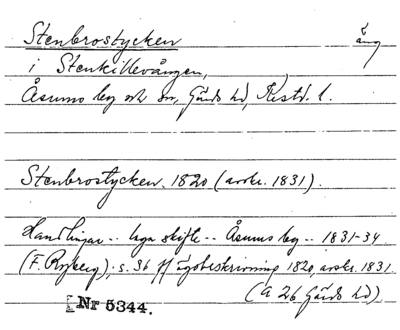 Stenbrostycken äng
i Stenkillevången,
Åsums by och sn, Gärds hd, Kristd. l.
Stenbrostycken 1820 (avskr. 1831).
Handlingar .. laga skifte .. Åsums by .. 1831-34
(F. Ryberg), s. 36 ff ägobeskrivning 1820, avskr. 1831.
(A 26 Gärds hd)
Nr 5344.